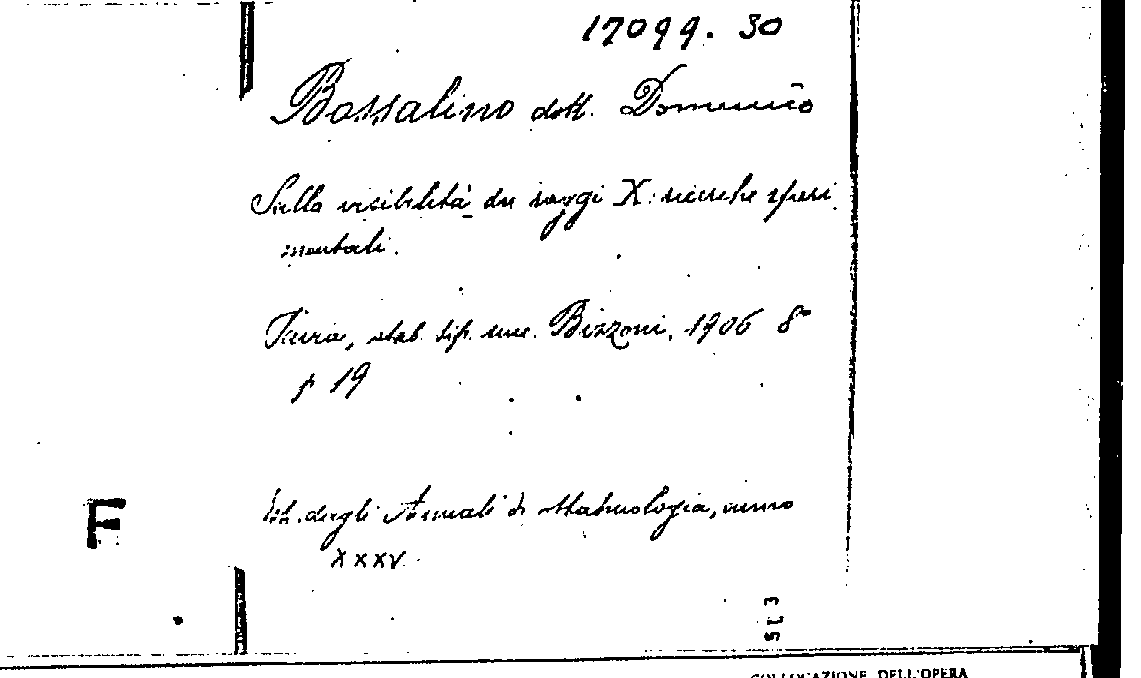 17099. 30
Bossalino dott. Domenico
Sulla visibilità dei raggi X: ricerche speri
mentali.
Pavia, stab. tip. succ. Bizzoni, 1906 8°
p 19
Est. degli Annali di Ottalmologia, anno
XXXV
F
COLLOCAZIONE DELL'OPERA